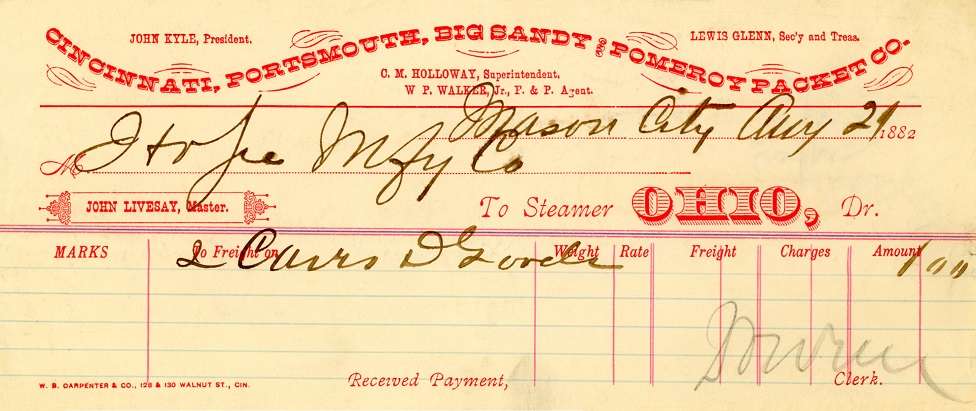 CINCINNATI, PORTSMOUTH, BIG SANDY & POMEROY PACKET CO.
JOHN KYLE, President.
LEWIS GLENN, Sec'y and Treas.
C. M. HOLLOWAY, Superintendent,
W. P. WALKER, Jr., F. & P. Agent.
Mason City Aug 21 1882
M Hope Mfg Co
JOHN LIVESAY, Master.
To Steamer OHIO, Dr.
MARKS To Freight on Weight Rate Freight Charges Amount
2 D Goods 1 00
Received Payment,
Clerk.
W. B. CARPENTER & CO., 128 & 130 WALNUT ST., CIN.